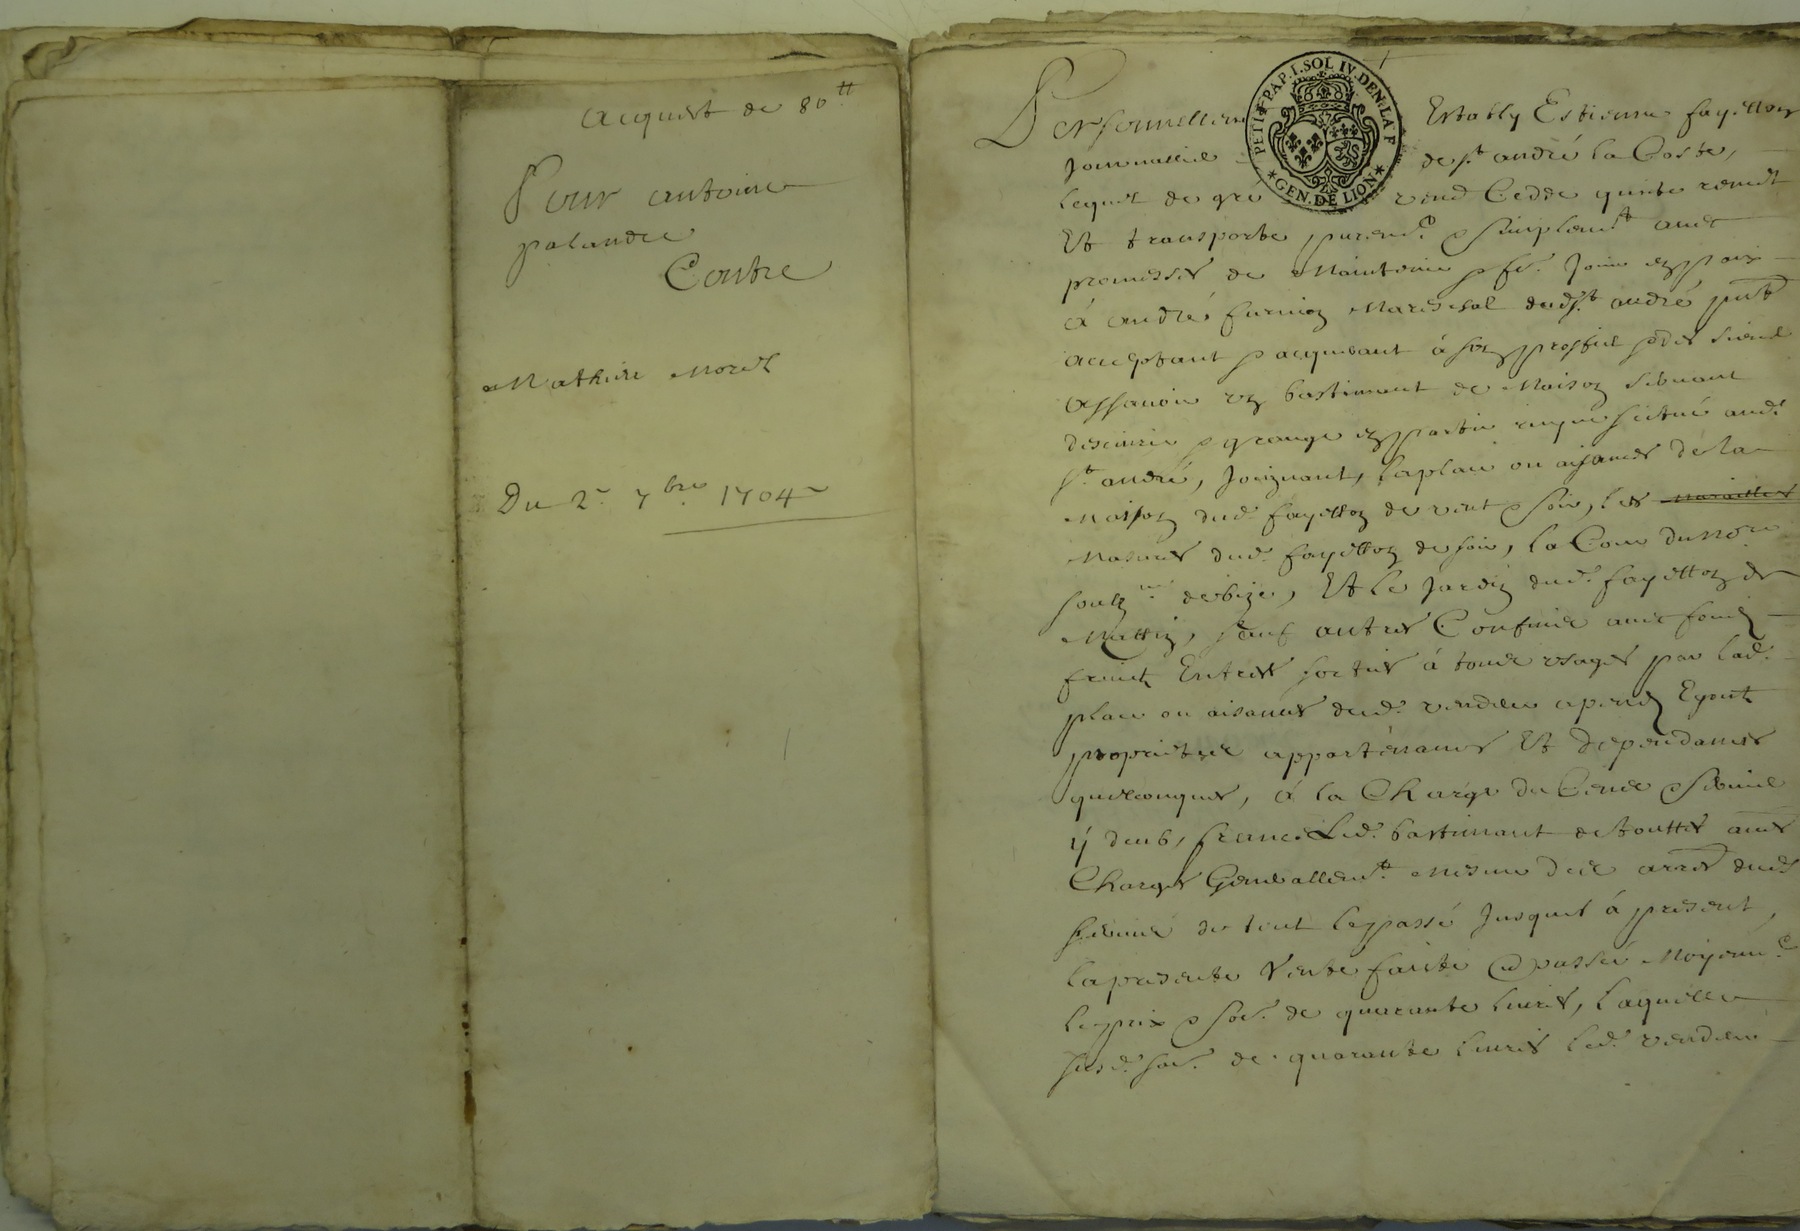 Acquist de 80 tt
Pour antoine
palandre
Contre
Mathieu Morel
Du 2e 7bre 1704
PETIT.PAP.I.SOL IV.DEN.LA F
*GEN.DE LION*
Personnellem Estably Estienne fayellon
Journallier de st andré la Coste,
lequel de gré vend Cedde quitte remet
Et transporte purem.t & simplem.t avec
promesses de Maintenir & fe. Jouir en paix
à andré furnion Mareschal dud st andré pnt
acceptant & acquerant à son proffit & des siens
assavoir un bastiment de Maison servant
descurie & grange en partie situé aud.
st. andré, Joignant, la place ou aisances de la
Maison dud. fayellon de vent & soir, les
Masures dud. fayellon de soir, la Cour
de bize, Et le Jardin dud. fayellon de
Mattin, sauf autres Confins avec fond
fruits Entrées sorties à tous usages par lad.
place ou aisances dud. vendeur
proprietez appartenances Et dependances
quelconques, à la Charge du Cens & servis
y deub, franc Led. bastimant de touttes aues
Charges Generallem.t mesme des arres. dud
servis de tout le passé Jusques à present,
la presente Vente faicte Et passée Moyenn.
le prix & so.e de quarante livres, laquelle
susd. so.e de quarante livres led. vendeur